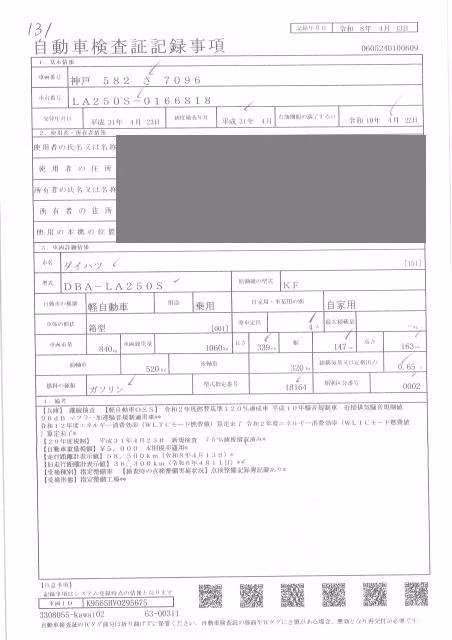 131
記録年月日 令和 8年 4月 13日
自動車検査証記録事項
0605240100609
1.基本情報
車両番号 神戸 582 さ 7096
車台番号 LA250S-0166818
交付年月日 平成 31年 4月 23日 初度検査年月 平成 31年 4月 有効期間の満了する日 令和 10年 4月 22日
2.使用者・所有者情報
使用者の氏名又は名称
使用者の住所
所有者の氏名又は名称
所有者の住所
使用の本拠の位置
3.車両詳細情報
車名 ダイハツ [151]
型式 DBA-LA250S 原動機の型式 KF
自動車の種別 軽自動車 用途 乗用 自家用・事業用の別 自家用
車体の形状 箱型 [001] 乗車定員 4人 最大積載量 -kg
車両重量 840kg 車両総重量 1060kg 長さ 339cm 幅 147cm 高さ 163cm
前軸重 520kg 後軸重 320kg 総排気量又は定格出力 0.65
燃料の種類 ガソリン 型式指定番号 18164 類別区分番号 0002
4.備考
【兵庫】 継続検査 【軽自動車OSS】 令和2年度燃費基準120%達成車 平成10年騒音規制車 近接排気騒音規制値
96dB マフラー加速騒音規制適用車**
令和12年度エネルギー消費効率(WLTCモード燃費値) 算定未了 令和2年度エネルギー消費効率(WLTCモード燃費値
)算定未了*
【29年度税制】 平成31年4月23日 新規検査 75%減税措置済み*
【自動車重量税額】 ¥5,000 本則税率適用*
【走行距離計表示値】 58,500km(令和8年4月13日)*
【旧走行距離計表示値】 36,300km(令和6年4月11日)*
【受検種別】指定整備車 【検査時の点検整備実施状況】点検整備記録簿記載あり*
【受検形態】指定整備工場**
【注意事項】
記録事項はシステム登録時点の情報となります
車両ID K9565HV0295675
3308055-kawai02 63-00311
自動車検査証のICタグ部分は折り曲げずに保管ください。自動車検査証の券面やICタグにき損がある場合、無効となり再交付が必要です